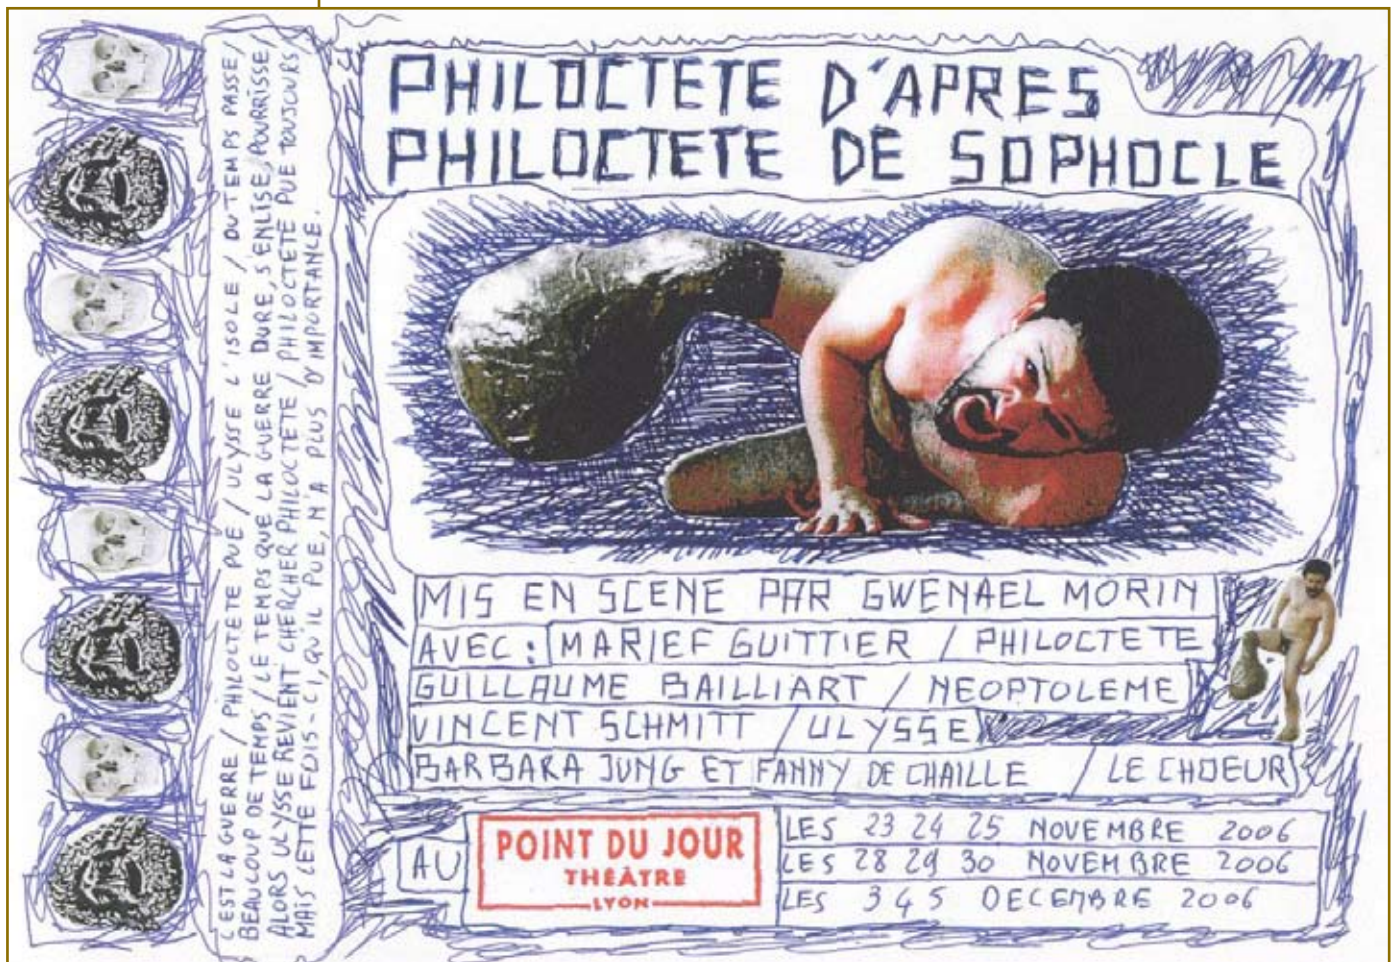 PHILOCTETE D'APRES
PHILOCTETE DE SOPHOCLE
C'EST LA GUERRE / PHILOCTETE PUE / ULYSSE L'ISOLE / DU TEMPS PASSE /
BEAUCOUP DE TEMPS / LE TEMPS QUE LA GUERRE DURE, S'ENLISE, POURRISSE /
ALORS ULYSSE REVIENT CHERCHER PHILOCTETE / PHILOCTETE PUE TOUJOURS
MAIS CETTE FOIS-CI, QU'IL PUE, N'A PLUS D'IMPORTANCE.
MIS EN SCENE PAR GWENAEL MORIN
AVEC : MARIEF GUITTIER / PHILOCTETE
GUILLAUME BAILLIART / NEOPTOLEME
VINCENT SCHMITT / ULYSSE
BARBARA JUNG ET FANNY DE CHAILLE / LE CHOEUR
AU
POINT DU JOUR
THÉÂTRE
LYON
LES 23 24 25 NOVEMBRE 2006
LES 28 29 30 NOVEMBRE 2006
LES 3 4 5 DECEMBRE 2006